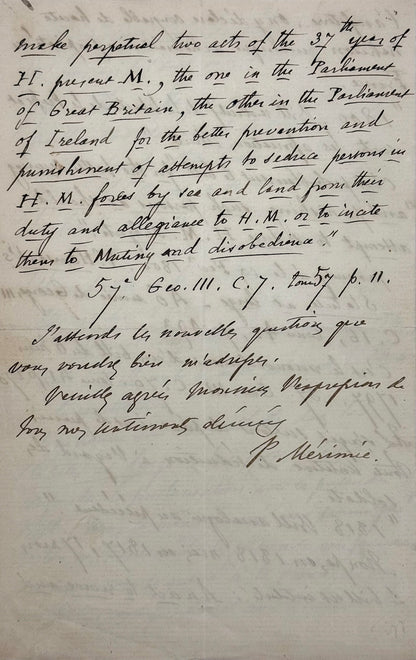 th
make perpetual two acts of the 37 year of
H. present M., the one in the Parliament
of Great Britain, the other in the Parliament
of Ireland for the better prevention and
punishment of attempts to seduce persons in
H. M. forces by sea and land from their
duty and allegiance to H. M. or to incite
them to Mutiny and disobedience."
57.e Geo. III. C. 7. tom 57 p. 11.
J'attends les nouvelles questions que
vous voudrez bien m'adresser.
Veuillez agréer Monsieur l'expression de
tous mes sentiments dévoués
P. Mérimée.